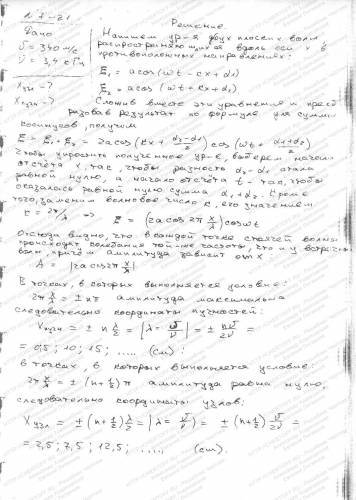 № 7-21.
Решение.
Дано
Напишем ур-я двух плоских волн,
υ = 340 м/с
распространяющихся вдоль оси x в
ν = 3,4 кГц
противоположных направлениях:
ξ₁ = a cos(ωt - kx + α₁)
Xузл - ?
ξ₂ = a cos(ωt + kx + α₂)
Xпучн - ?
Сложив вместе эти уравнения и преоб
разовав результат по формуле для суммы
косинусов, получим
ξ = ξ₁ + ξ₂ = 2a cos(kx + (α₂-α₁)/2) cos(ωt + (α₁+α₂)/2)
Чтобы упростить полученное ур-е, выберем начало
отсчёта x так, чтобы разность α₂-α₁ стала
равной нулю, а начало отсчёта t - так, чтобы
оказалась равной нулю сумма α₁+α₂. Кроме
того, заменим волновое число k, его значением
k = 2π/λ => ξ = (2a cos 2π x/λ) cos ωt
Отсюда видно, что в каждой точке стоячей волны
происходят колебания той же частоты, что и у встречных
волн, причём амплитуда зависит от x
A = |2a cos 2π x/λ|
В точках, в которых выполняется условие:
2π x/λ = ± nπ амплитуда максимальна
следовательно координаты пучностей:
Xпучн = ± n λ/2 = |λ = υ/ν| = ± nυ/2ν =
= 0; 5; 10; 15; ..... (см);
в точках, в которых выполняется условие:
2π x/λ = ± (n+½) π амплитуда равна нулю,
следовательно координаты узлов:
Xузл = ± (n+½) λ/2 = |λ = υ/ν| = ± (n+½) υ/2ν =
= 2,5; 7,5; 12,5; ..... (см).